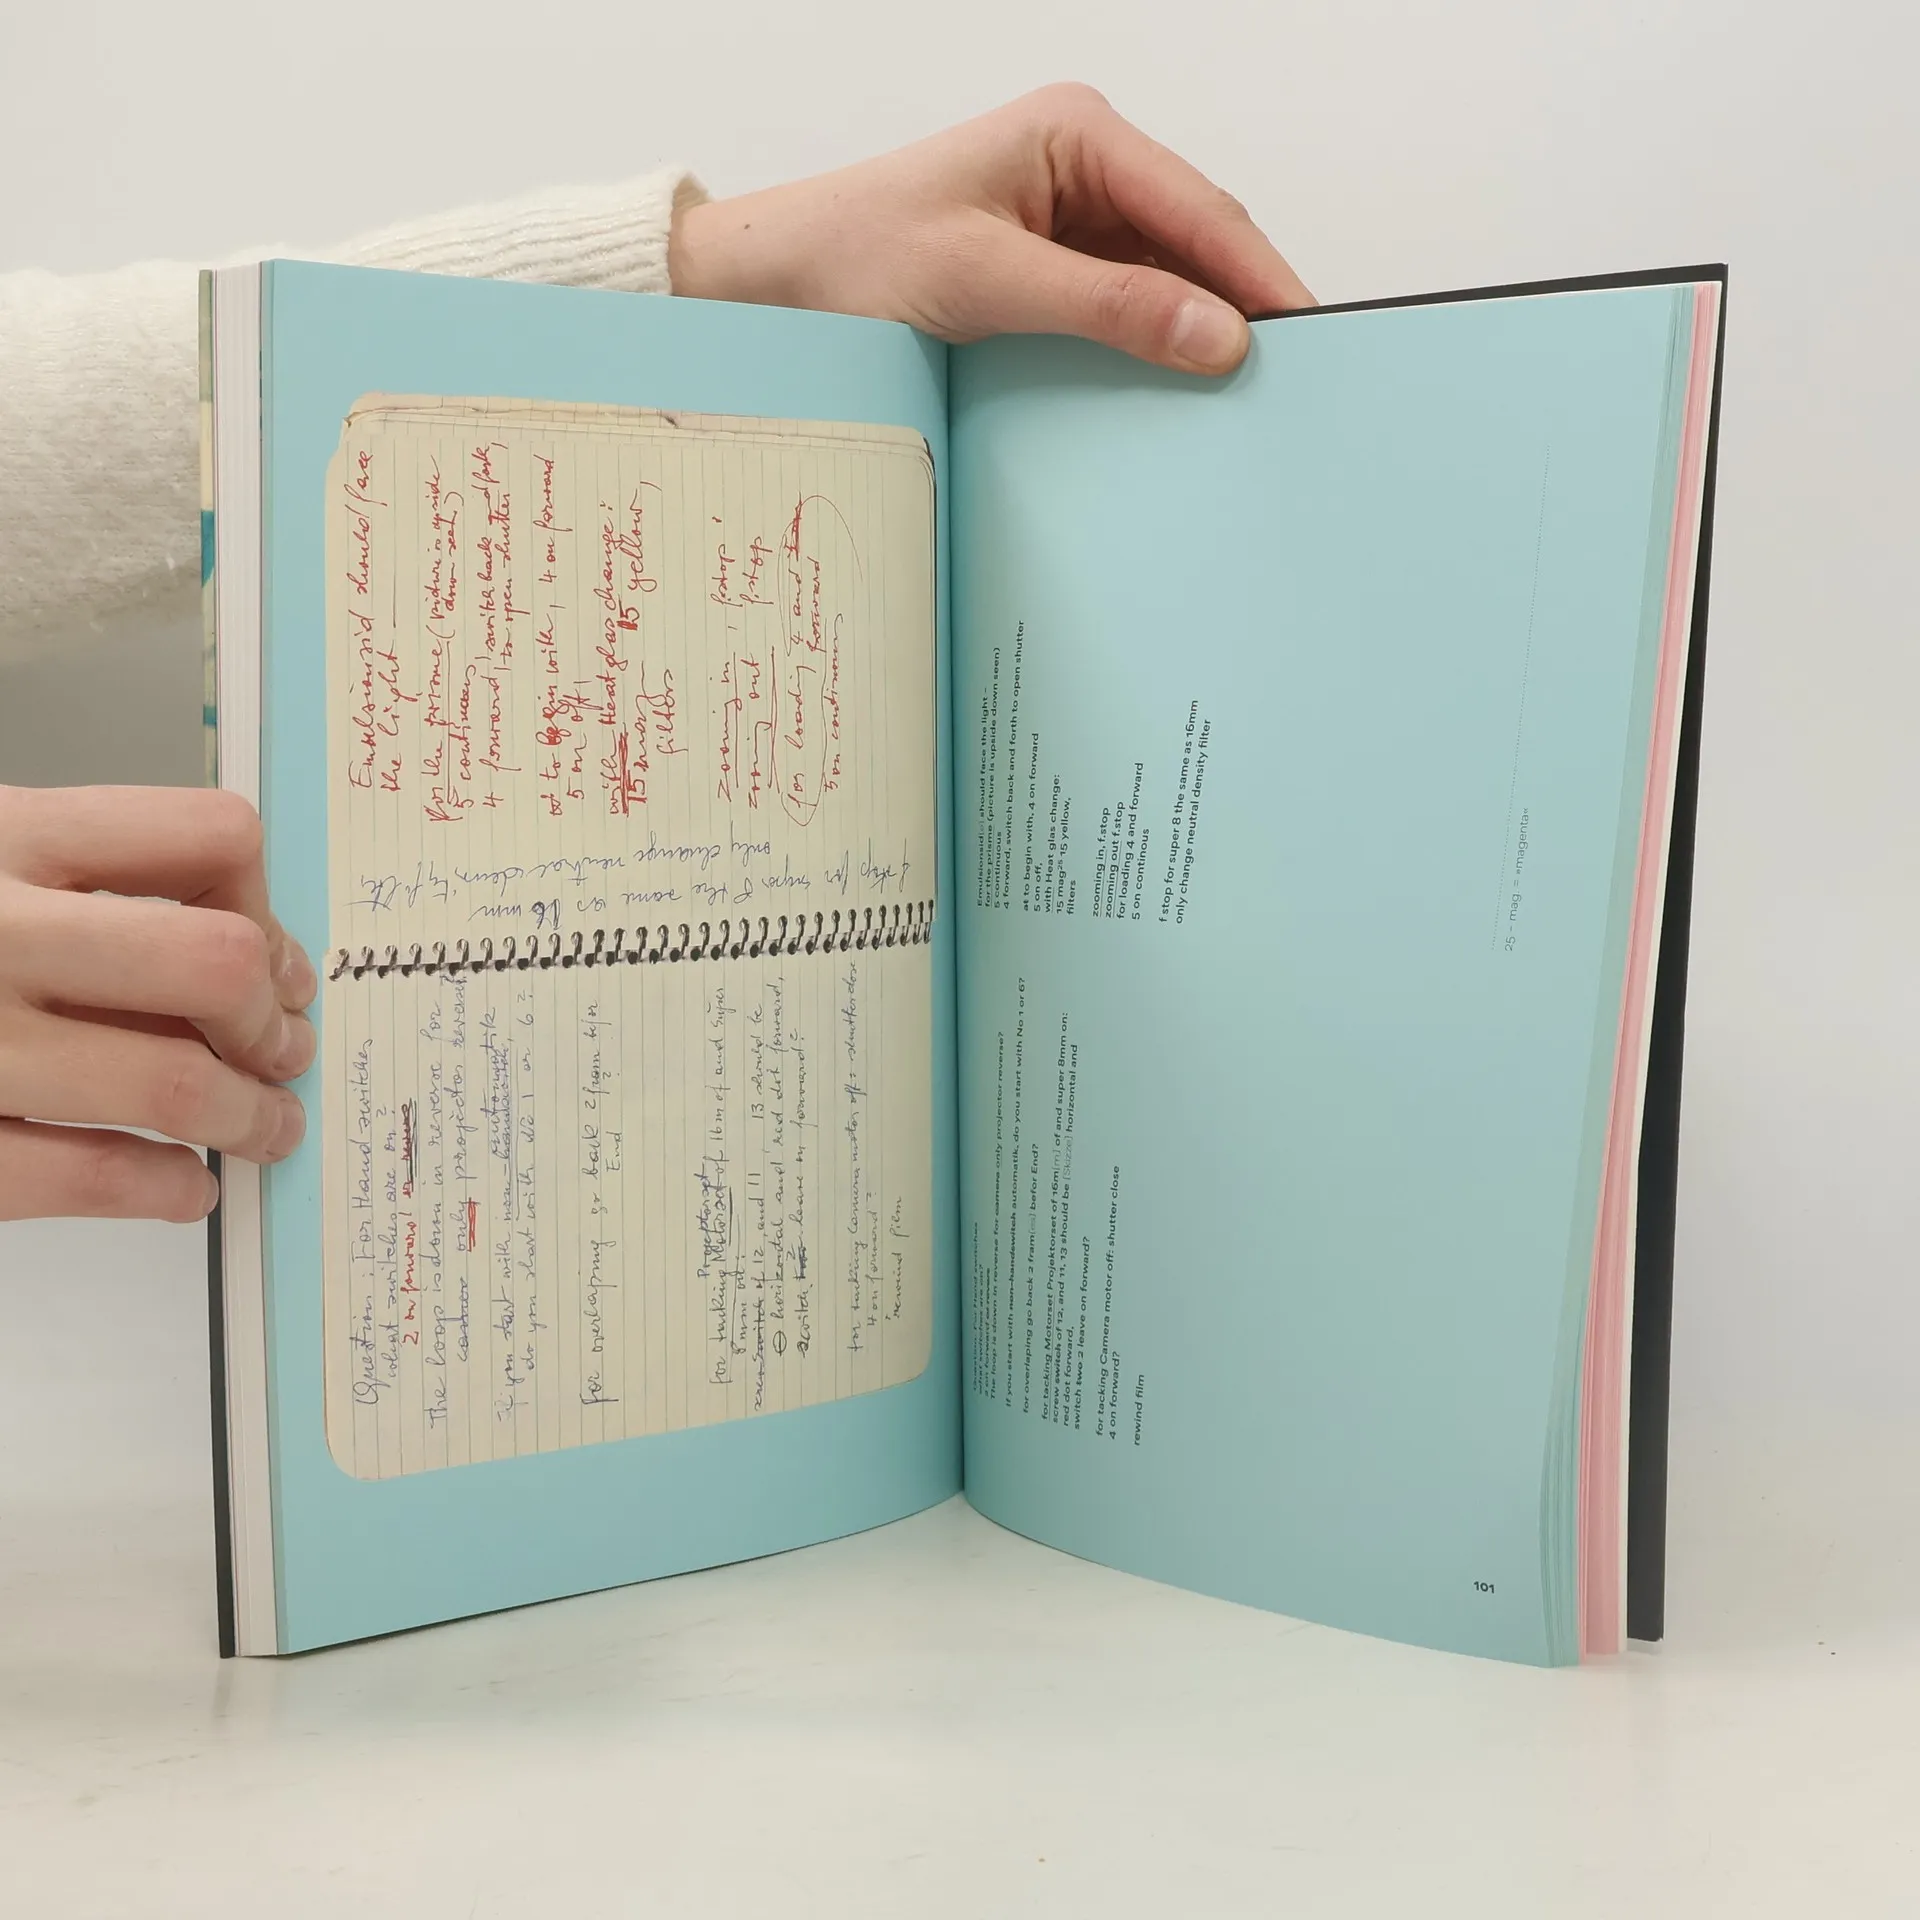 Question: For Hand switches
what switches are on?
2 on forward or reverse
The loop is down in reverse for
camera only projector reverse?
if you start with non-handswitch, automatik
do you start with No 1 or 6?
For overlaping go back 2 fram befor
End?
Projektorset
for tacking Motorset of 16m of and super
8mm on:
screw switch of 12, and 11, 13 should be
horizontal and red dot forward,
switch two 2 leave on forward?
for tacking Camera motor off: shutter close
4 on forward?
rewind film
Emulsionsid should face
the light —
for the prisme (picture is upside
down seen)
5 continuous
4 forward, switch back and forth,
to open shutter
at to begin with, 4 on forward
5 on off!
with Heat glas change:
15 mag 15 yellow,
filters
zooming in, f.stop
zooming out f.stop
for loading 4 and
forward
5 on continous
f stop for super 8 the same as 16mm
only change neutral density filter
Question: For Hand switches
what switches are on?
2 on forward or revers
The loop is down in reverse for camera only projector reverse?
If you start with non-handswitch automatik, do you start with No 1 or 6?
for overlaping go back 2 fram(es) befor End?
for tacking Motorset Projektorset of 16m(m) of and super 8mm on:
screw switch of 12, and 11, 13 should be (Skizze) horizontal and
red dot forward,
switch two 2 leave on forward?
for tacking Camera motor off: shutter close
4 on forward?
rewind film
Emulsionsid(e) should face the light –
for the prisme (picture is upside down seen)
5 continuous
4 forward, switch back and forth to open shutter
at to begin with, 4 on forward
5 on off,
with Heat glas change:
15 mag²⁵ 15 yellow,
filters
zooming in, f.stop
zooming out f.stop
for loading 4 and forward
5 on continous
f stop for super 8 the same as 16mm
only change neutral density filter
25 – mag = »magenta«
101